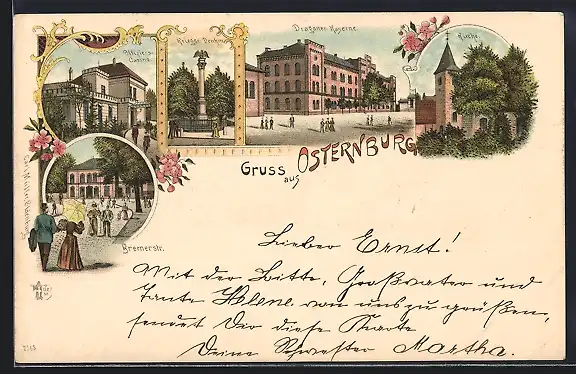 Offiziers-
Casino.
Krieger Denkmal
Dragoner Kaserne
Kirche.
Gruss
aus
OSTERNBURG
Bremerstr.
Lieber Ernst!
Mit der Bitte, Großvater und
Tante Helene von uns zu grüßen,
sendet Dir diese Karte
Deine Schwester Martha.